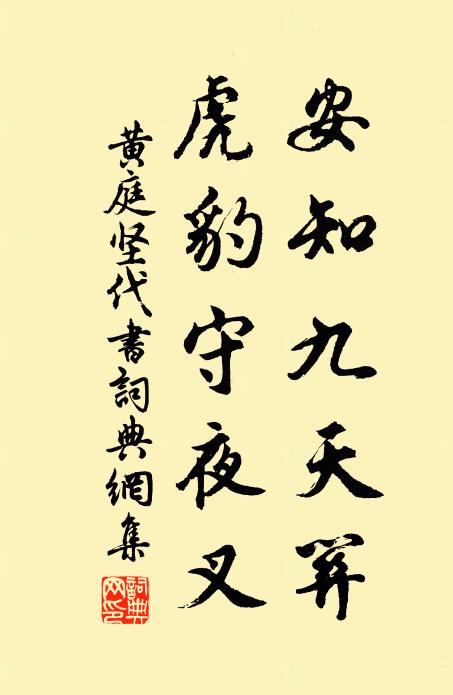 安知九天關
虎豹守夜叉
黄庭坚代書詞典網集
詞典网印